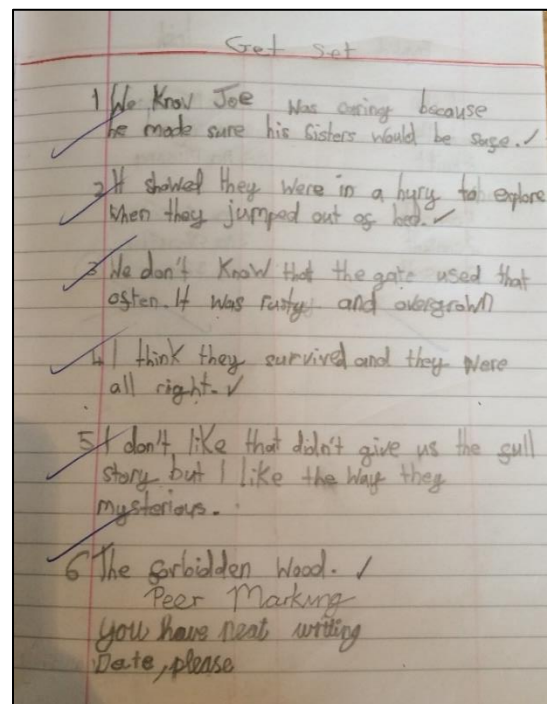 Get Set
1 We Know Joe was caring because
he made sure his sisters would be sage.
2 It showed they were in a hury to explore
when they jumped out og bed.
3 We don't know that the gate used that
ogten. It was rusty and overgrown
4 I think they survived and they were
all right.
5 I don't like that didn't give us the gull
story but I like the way they
mysterious.
6 The gorbidden wood.
Peer Marking
you have neat writing
Date, please